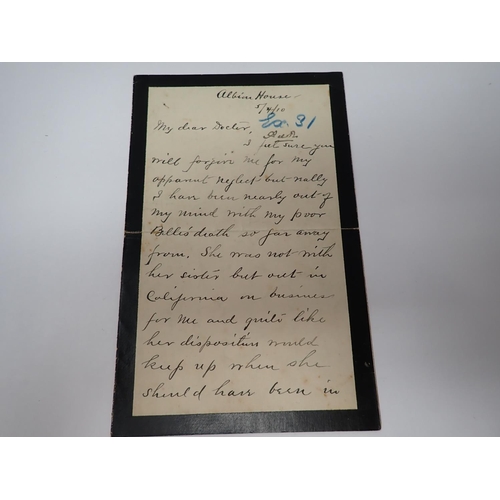 Albion House
5/4/10
My dear Doctor, Ex. 31
I feel sure you
will forgive me for my
apparent neglect but really
I have been nearly out of
my mind with my poor
Belle's death so far away
from. She was not with
her sister but out in
California on business
for me and quite like
her disposition would
keep up when she
should have been in